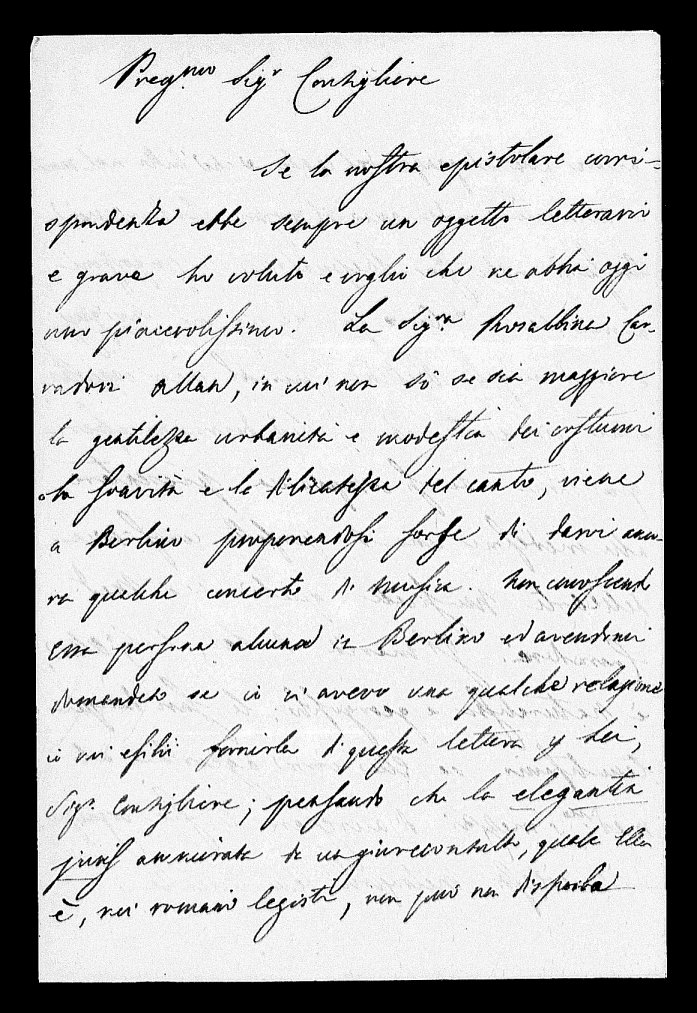 Preg.mo Sig.r Consigliere
Se la nostra epistolare corri-
spondenza ebbe sempre un oggetto letterario
e grave ho voluto e voglio che ne abbia oggi
uno piacevolissimo. La Sig.ra Rosalbina Car-
radori Allan, in cui non sò se sia maggiore
la gentilezza urbanità e modestia dei costumi
o la soavità e la dilicatezza del canto, viene
a Berlino proponendosi forse di darvi anco-
ra qualche concerto di musica. Non conoscendo
essa persona alcuna in Berlino ed avendomi
domandato se io vi avevo una qualche relazione
io mi esibii fornirla di questa lettera p Lei,
Sig.r Consigliere; pensando che la elegantia
juris ammirata da un giureconsulto, quale Ella
è, nei romani legisti, non può non